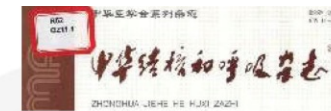 中华医学会系列杂志
R52
Q211.1
中华结核和呼吸杂志
ZHONGHUA JIEHE HE HUXI ZAZHI